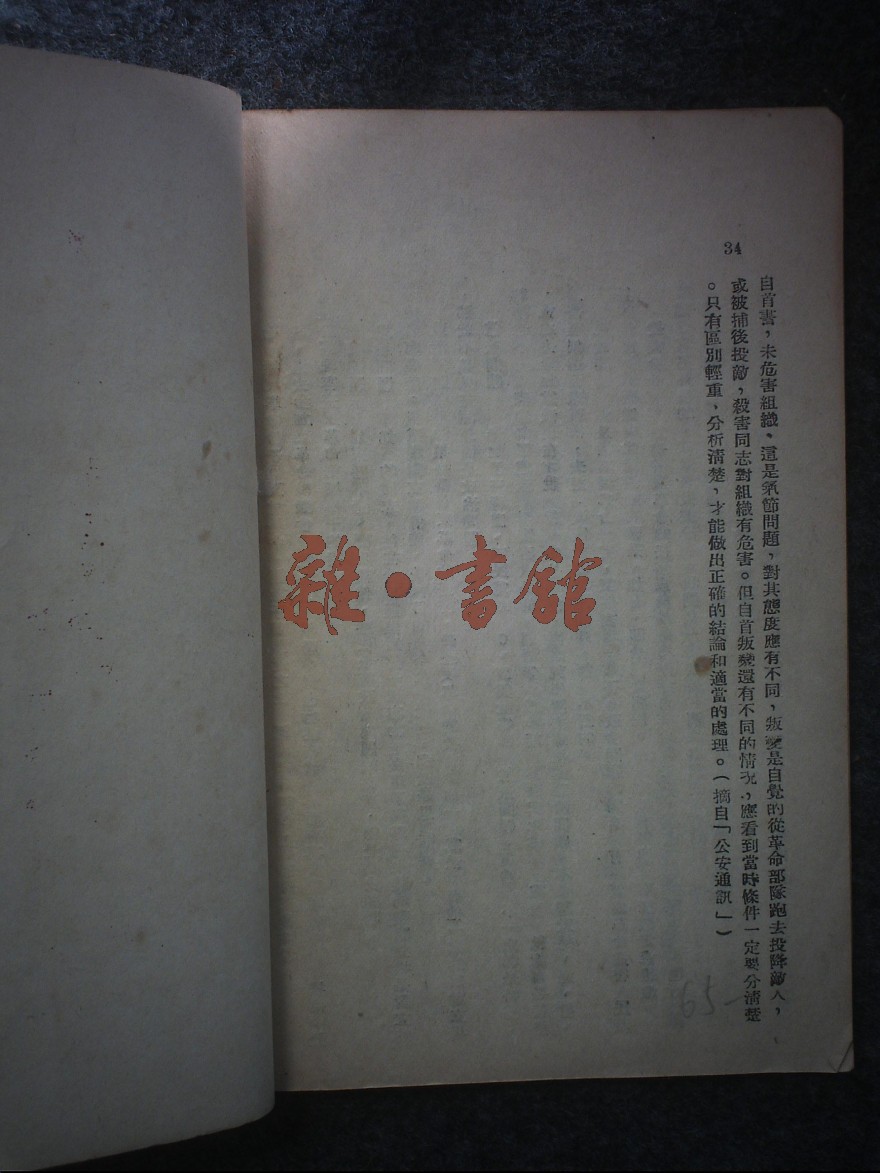 34
自首書，未危害組織、這是氣節問題，對其態度應有不同，叛變是自覺的從革命部隊跑去投降敵人，
或被捕後投敵，殺害同志對組織有危害。但自首叛變還有不同的情況，應看到當時條件一定要分清楚
。只有區別輕重、分析清楚，才能做出正確的結論和適當的處理。（摘自「公安通訊」）
雜·書館
65